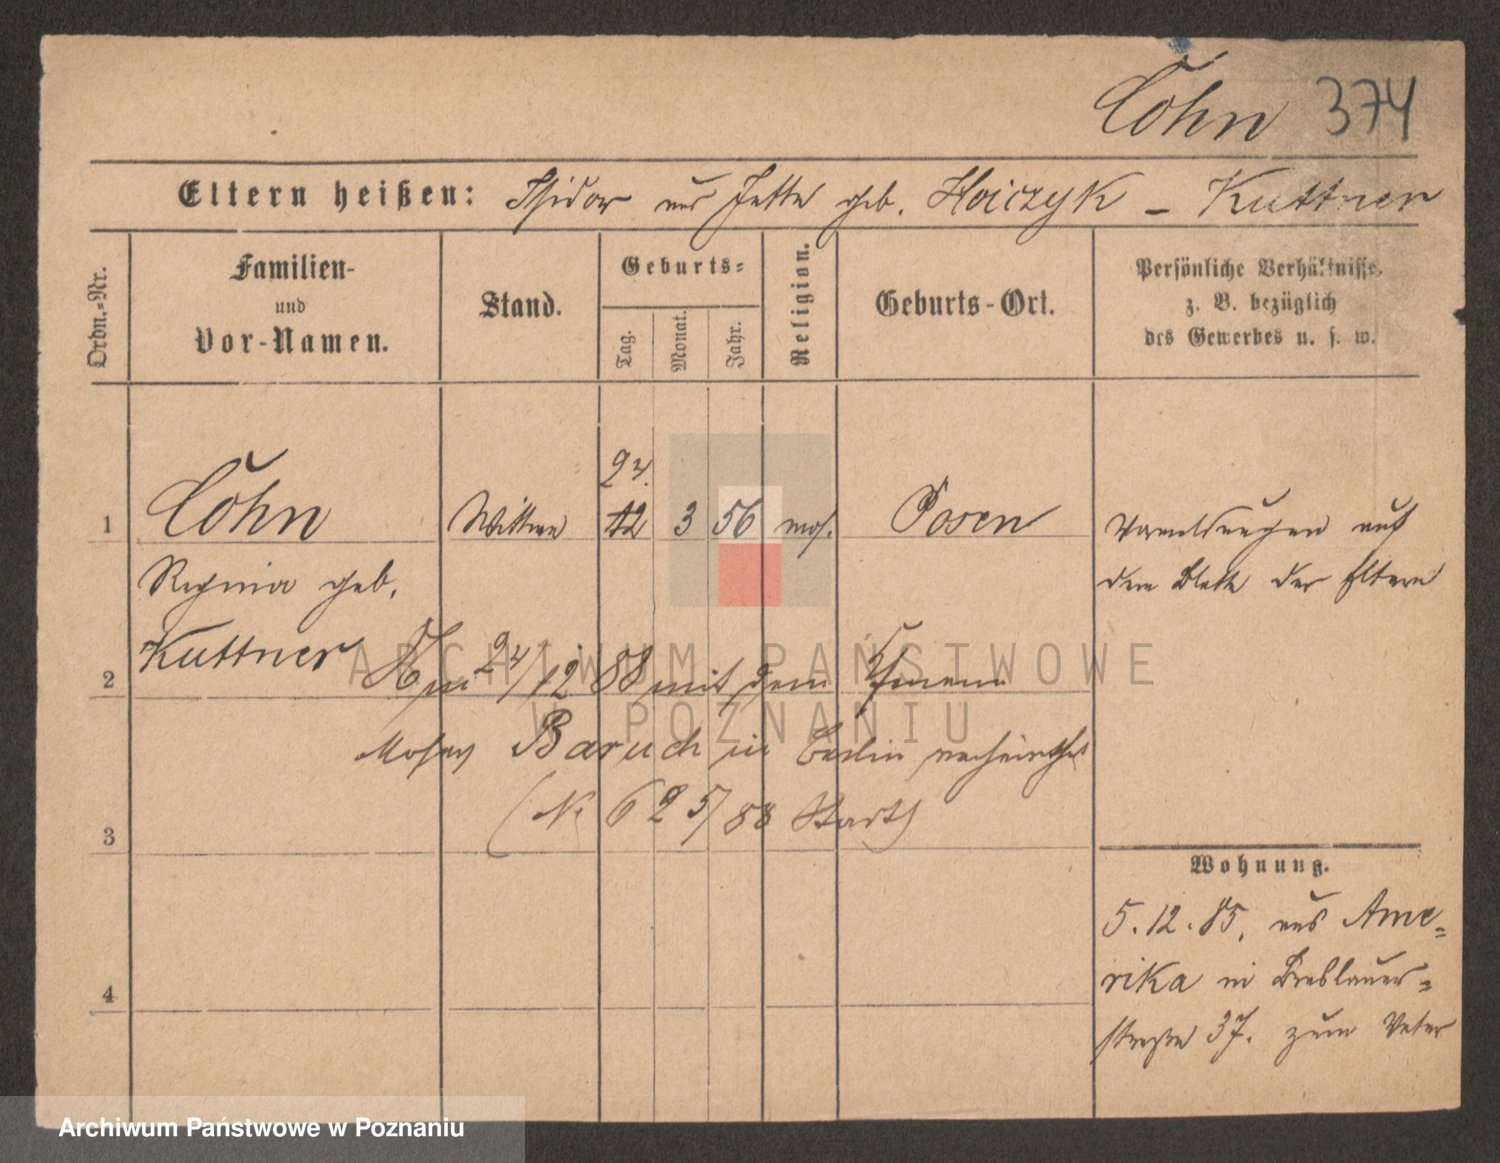 Cohn 374
Eltern heißen: Isidor und Jette geb. Hoiczyk - Kuttner
Ordn.-Nr.
Familien-
und
Vor-Namen.
Stand.
Geburts-
Tag.
Monat.
Jahr.
Religion.
Geburts-Ort.
Persönliche Verhältnisse,
z. B. bezüglich
des Gewerbes u. s. w.
24.
1 Cohn Wittwe 12 3 56 mos. Posen
auf
dem Blatt der Eltern
Regina geb.
Kuttner
2 24/12 88 mit dem
Baruch in Berlin verheirathet
(No 625/88
3
Wohnung.
5.12.85. aus Ame-
rika in Breslauer-
straße 37. zum Vater
4
ARCHIWUM PAŃSTWOWE
W POZNANIU
Archiwum Państwowe w Poznaniu